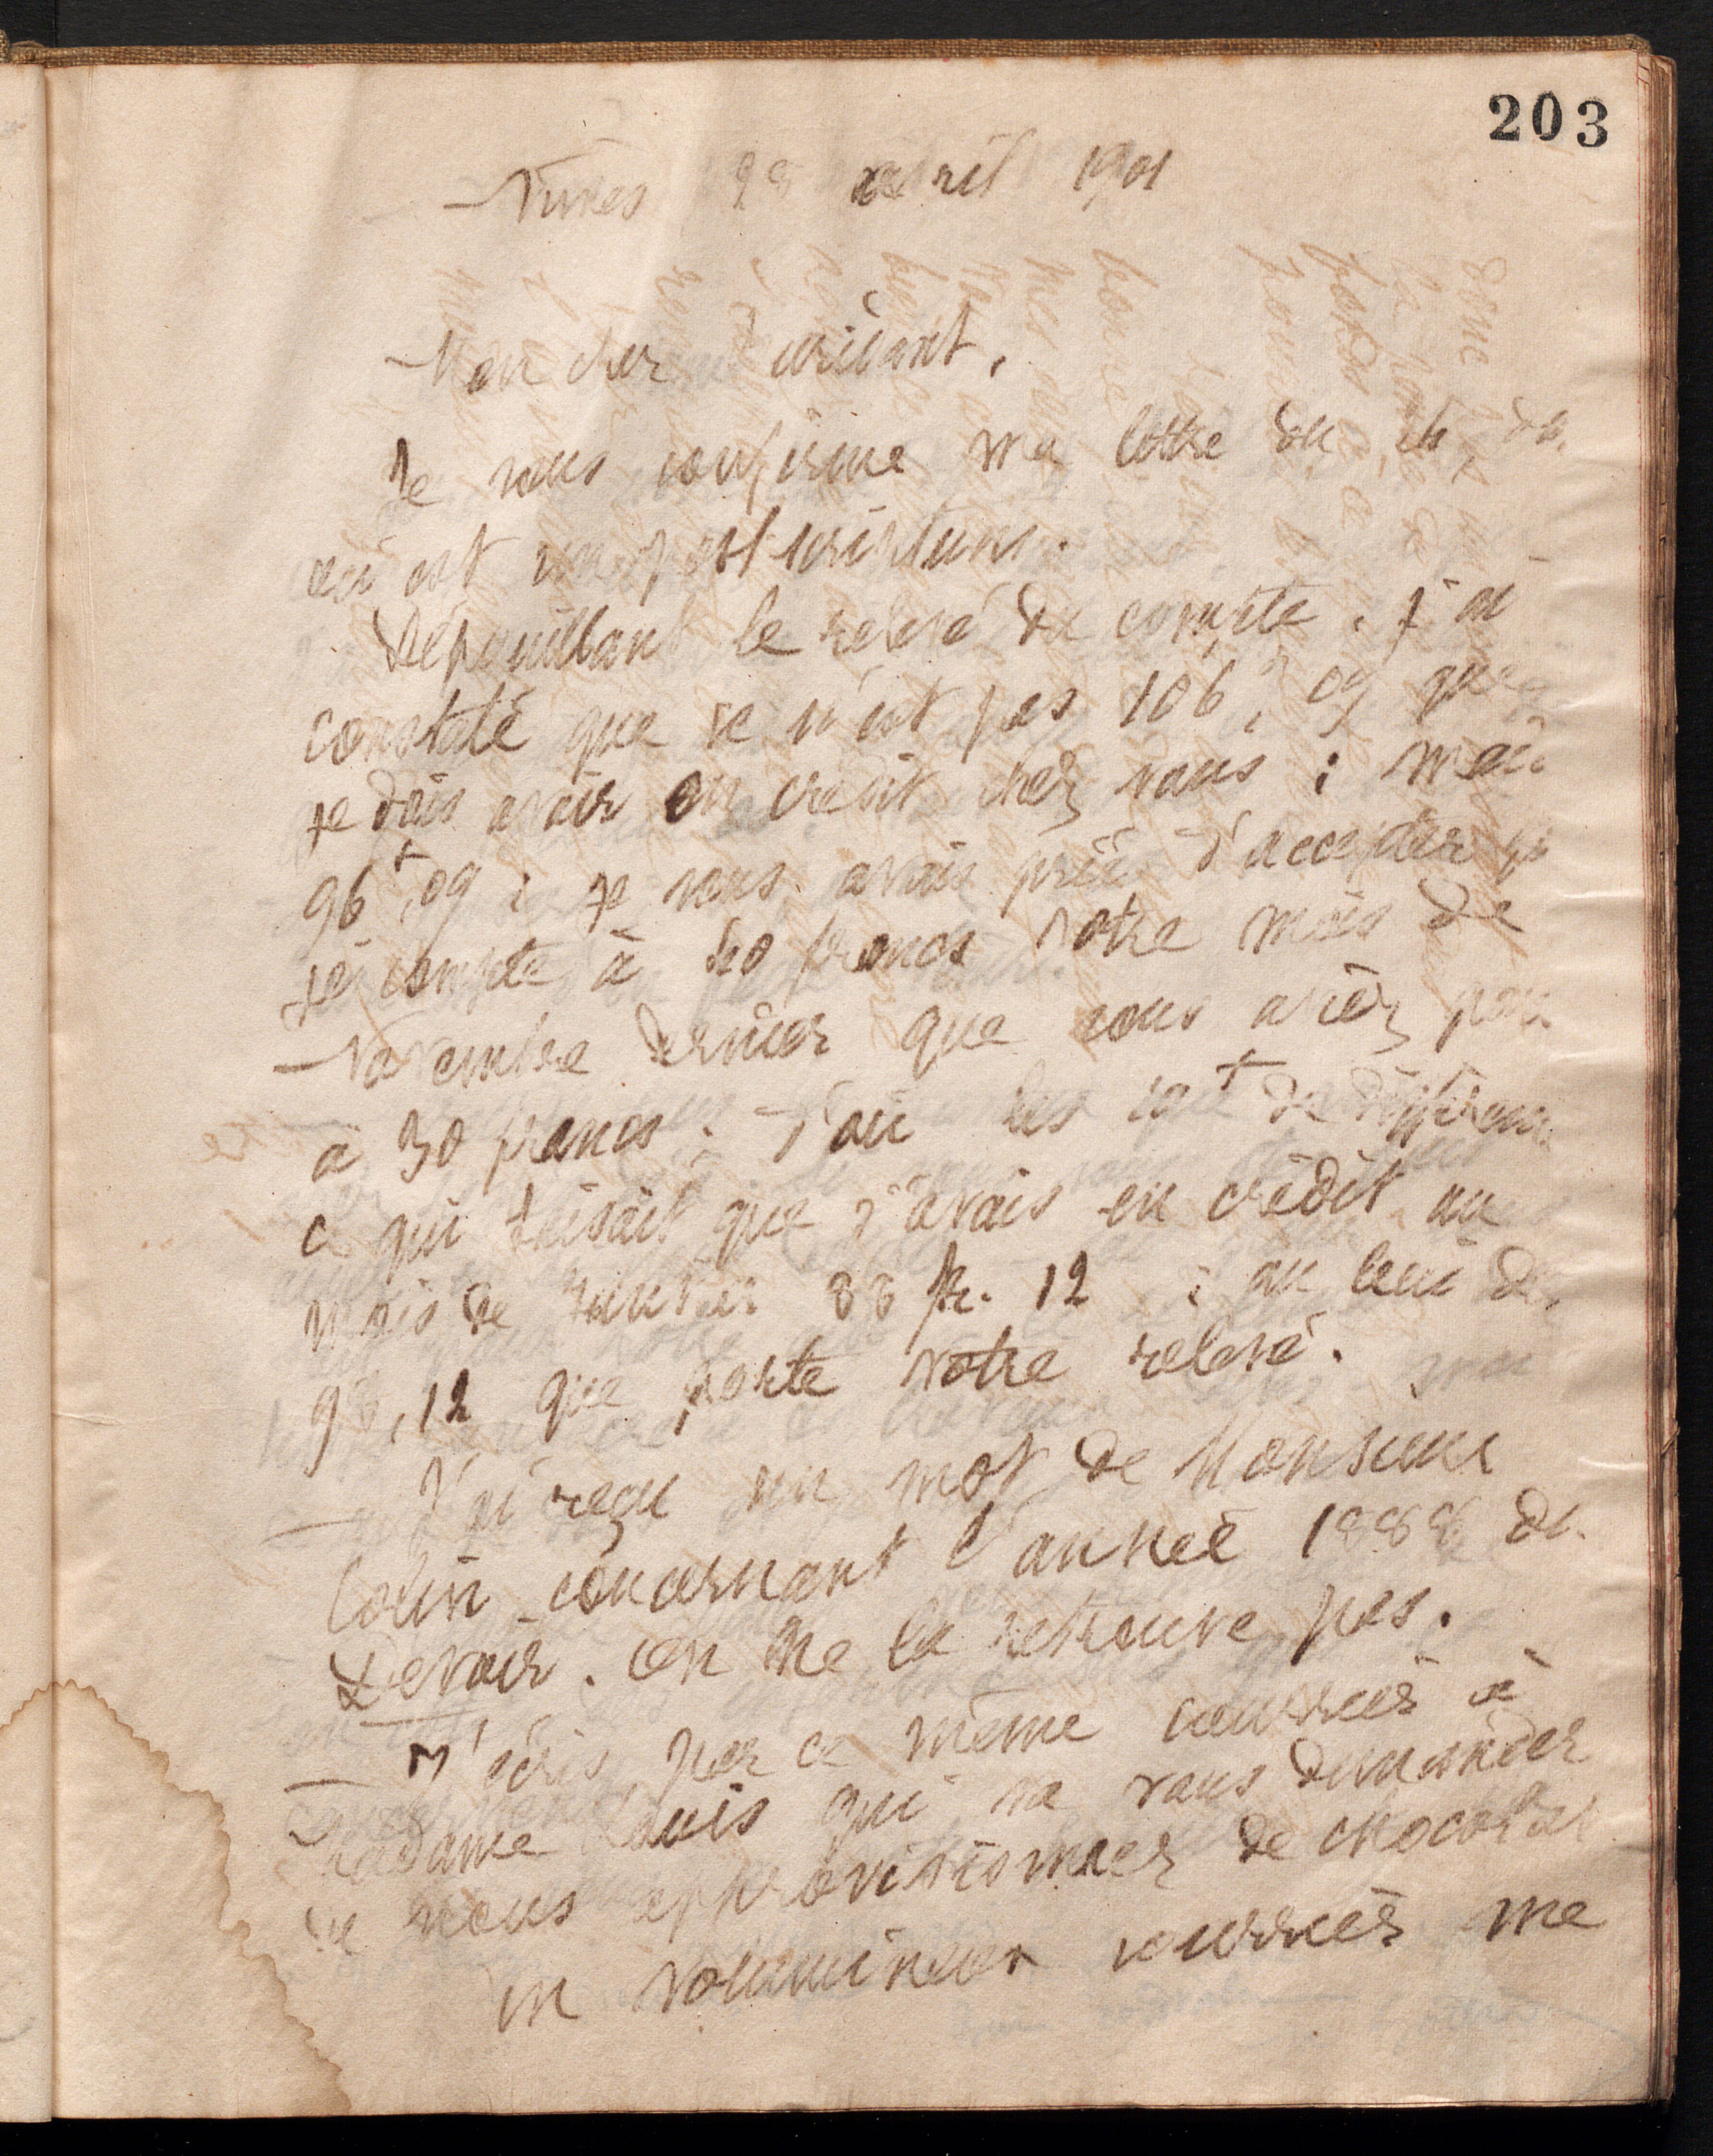 203
Nimes 28 avril 1901
Mon cher
Je vous confirme ma lettre du
ceci est un post scriptum.
Dépouillant le relevé du compte. j'ai
constaté que ce n'est pas 106 f, 09 que
je dois avoir en crédit chez vous ; mais
96 f, 09 ; je vous avais prié d'accepter
décompte à 40 francs votre mois de
Novembre dernier que vous aviez
à 30 francs ; d'où les 10 f de différence
ce qui faisait que j'avais en crédit au
mois de Janvier 88 fr. 12 ; au lieu de
98,12 que porte votre relevé.
J'ai reçu un mot de Monsieur
Colin concernant l'année 1888 du
Devoir. On ne la retrouve pas.
J'écris par ce même courrier à
Madame Louis qui va vous demander
de nous approvisionner de chocolat
un volumineux courrier me